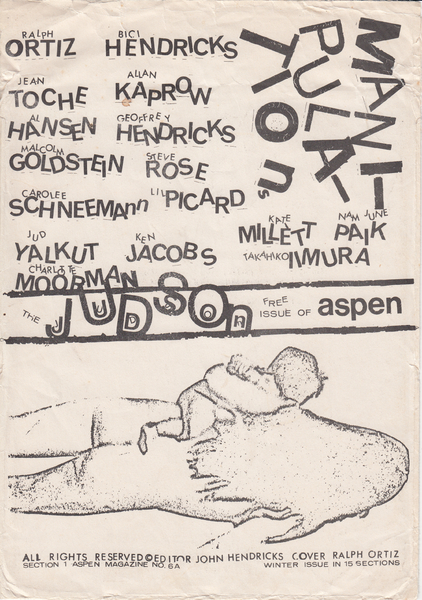 RALPH ORTIZ
BICI HENDRICKS
MANI-
PULA-
TIONs
JEAN TOCHE
ALLAN KAPROW
AL HANSEN
GEOFFREY HENDRICKS
MALCOLM GOLDSTEIN
STEVE ROSE
CAROLEE SCHNEEMAnn
LIL PICARD
KATE MILLETT
NAM JUNE PAIK
JUD YALKUT
KEN JACOBS
TAKAHIKO IIMURA
CHARLOTTE MOORMAN
THE JUDSOn FREE ISSUE OF aspen
ALL RIGHTS RESERVED © EDITOR JOHN HENDRICKS COVER RALPH ORTIZ
SECTION 1 ASPEN MAGAZINE NO. 6A
WINTER ISSUE IN 15 SECTIONS